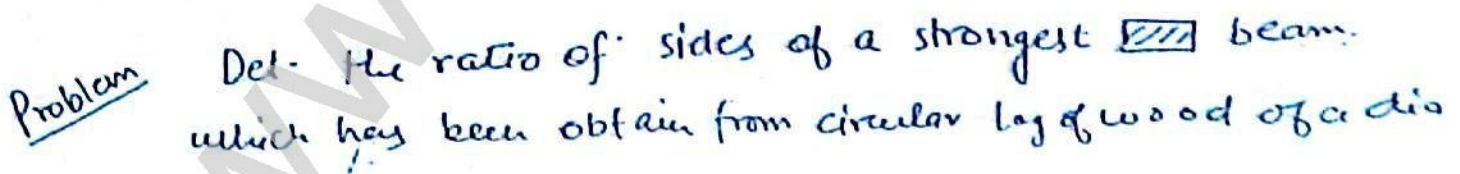 Problem Det. the ratio of sides of a strongest beam.
which has been obtain from circular log of wood of a dia